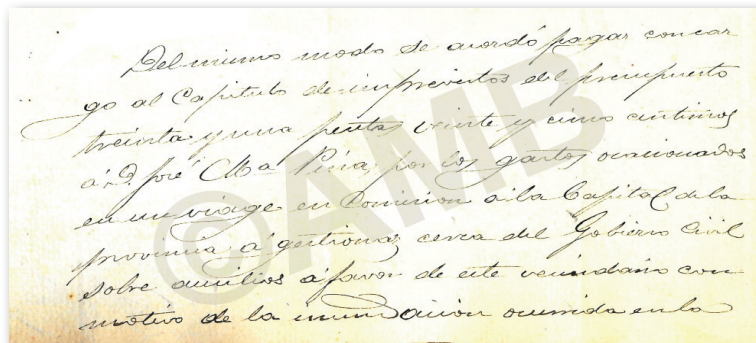 Del mismo modo se acordó pagar con car
go al Capitulo de imprevistos del presupuesto
treinta y una pesetas veinte y cinco centimos
á D. José Mª Piña, por los gastos ocasionados
en un viage en Comision a la Capital de la
provincia á gestionar cerca del Gobierno Civil
sobre auxilios á favor de este vecindario con
motivo de la inundacion ocurrida en la
©AMB